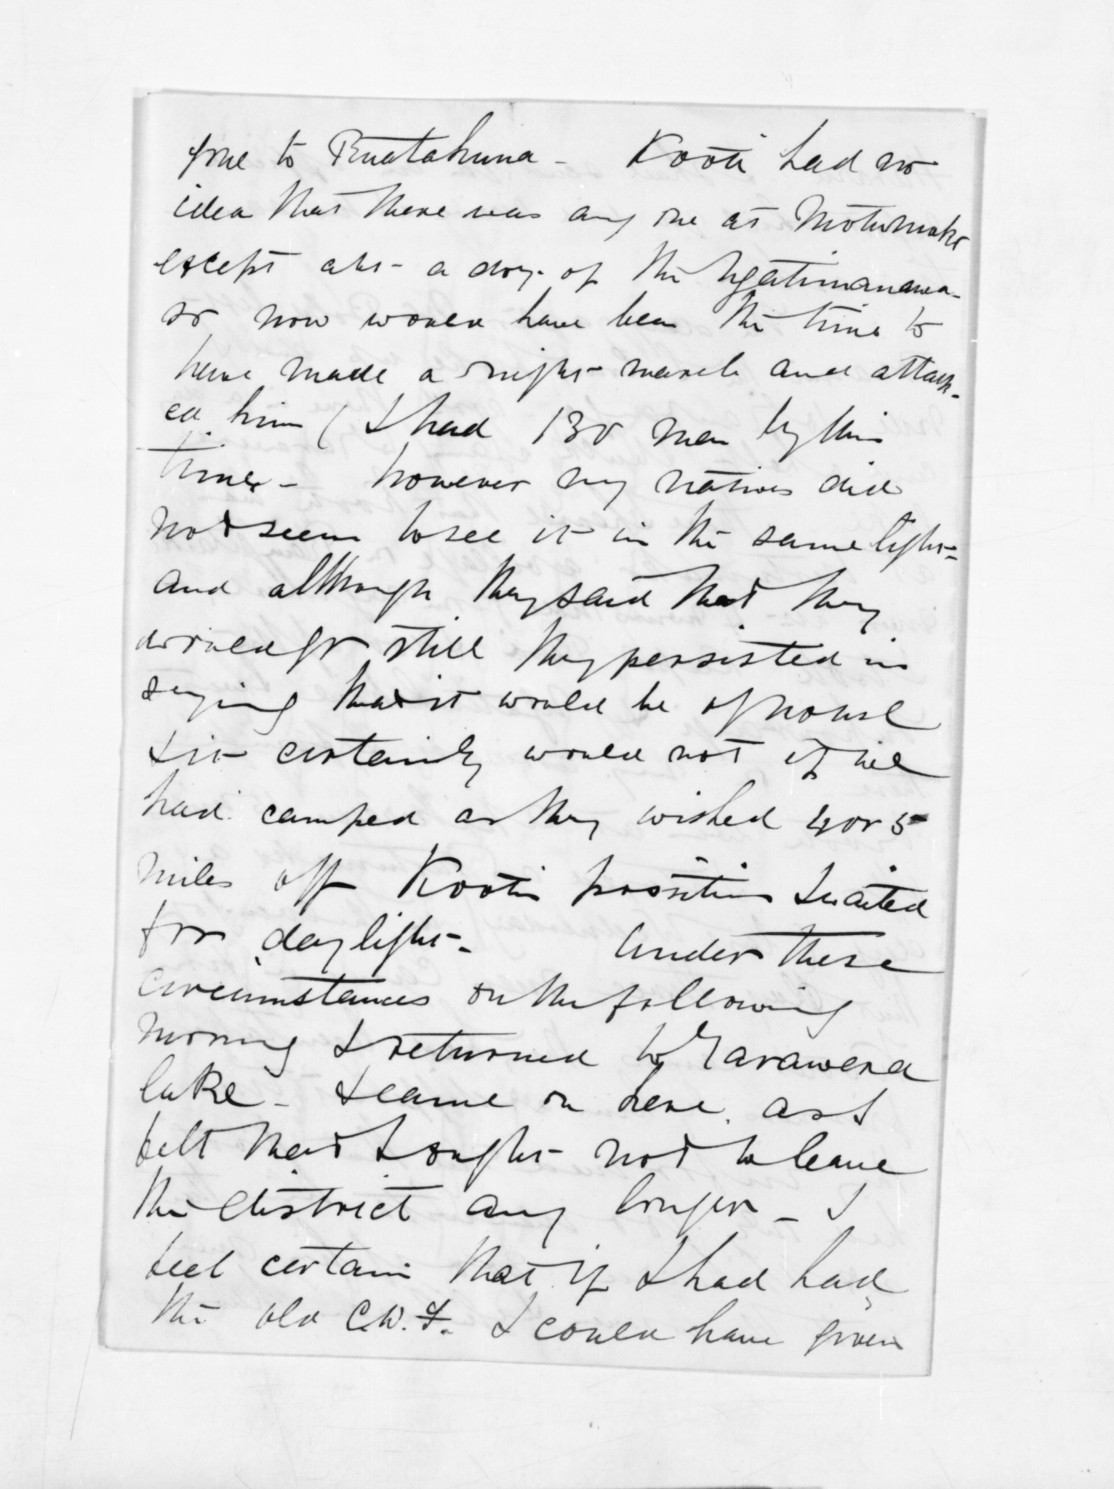 gone to Ruatahuna - Kooti had no
idea that there was any one at Motumako
except abt - a doz. of the Ngatimanawa -
so now would have been the time to
have made a night march and attack-
ed him ( I had 130 men by this
time - however my natives did
not seem to see it in the same light -
and although they said that they
would go still they persisted in
saying that it would be of no use
& it certainly would not if we
had camped as they wished 4 or 5
miles off Kootis position & waited
for daylight - Under these
circumstances on the following
morning I returned to Tarawera
lake - I came on here as I
felt that I ought not to leave
the district any longer - I
feel certain that if I had had
the old C.W.F. I could have given